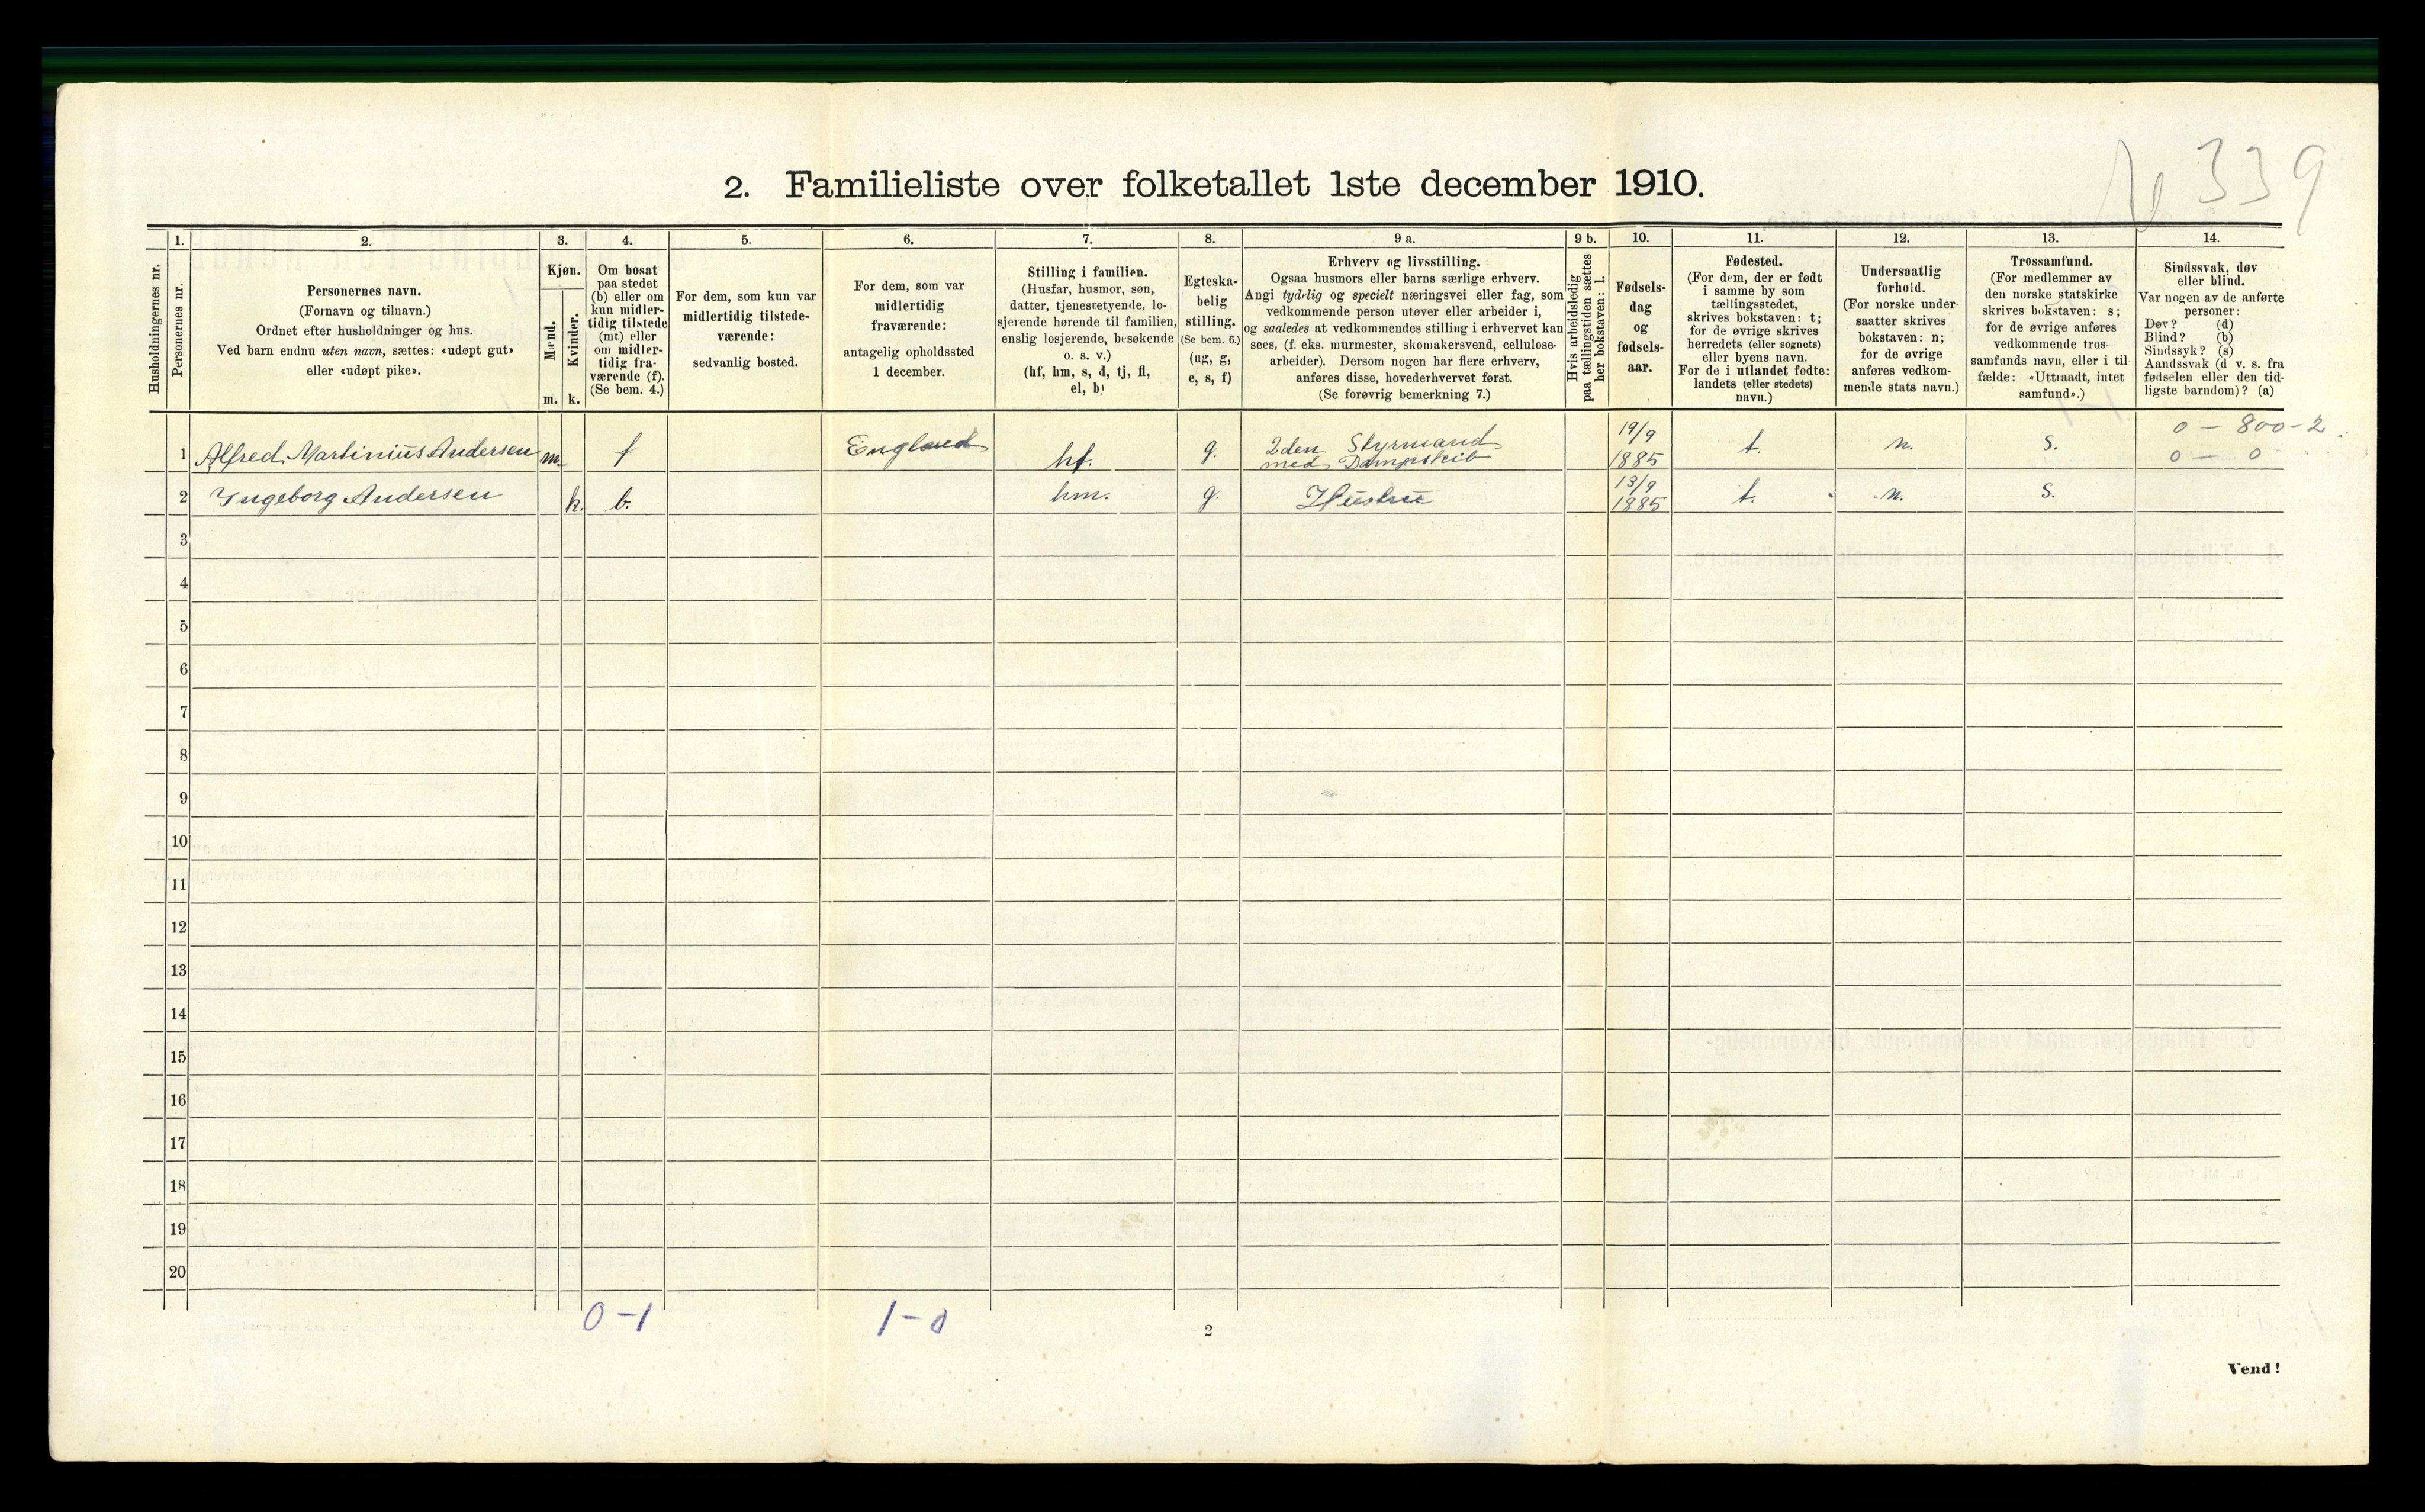 № 339
2. Familieliste over folketallet 1ste december 1910.
Husholdningernes nr.
1.
Personernes nr.
2.
Personernes navn.
(Fornavn og tilnavn.)
Ordnet efter husholdninger og hus.
Ved barn endnu uten navn, sættes: «udøpt gut»
eller «udøpt pike».
3.
Kjøn.
Mænd.
Kvinder.
m. k.
4.
Om bosat
paa stedet
(b) eller om
kun midler-
tidig tilstede
(mt) eller
om midler-
tidig fra-
værende (f).
(Se bem. 4.)
5.
For dem, som kun var
midlertidig tilstede-
værende:
sedvanlig bosted.
6.
For dem, som var
midlertidig
fraværende:
antagelig opholdssted
1 december.
7.
Stilling i familien.
(Husfar, husmor, søn,
datter, tjenestyende, lo-
sjerende hørende til familien,
enslig losjerende, besøkende
o. s. v.)
(hf, hm, s, d, tj, fl,
el, b)
8.
Egteska-
belig
stilling.
(Se bem. 6.)
(ug, g,
e, s, f)
9 a.
Erhverv og livsstilling.
Ogsaa husmors eller barns særlige erhverv.
Angi tydelig og specielt næringsvei eller fag, som
vedkommende person utøver eller arbeider i,
og saaledes at vedkommendes stilling i erhvervet kan
sees, (f. eks. murmester, skomakersvend, cellulose-
arbeider). Dersom nogen har flere erhverv,
anføres disse, hovederhvervet først.
(Se forøvrig bemerkning 7.)
9 b.
Hvis arbeidsledig
paa tællingstiden sættes
her bokstaven: l.
10.
Fødsels-
dag
og
fødsels-
aar.
11.
Fødested.
(For dem, der er født
i samme by som
tællingsstedet,
skrives bokstaven: t;
for de øvrige skrives
herredets (eller sognets)
eller byens navn.
For de i utlandet fødte:
landets (eller stedets)
navn.)
12.
Undersaatlig
forhold.
(For norske under-
saatter skrives
bokstaven: n;
for de øvrige
anføres vedkom-
mende stats navn.)
13.
Trossamfund.
(For medlemmer av
den norske statskirke
skrives bokstaven: s;
for de øvrige anføres
vedkommende tros-
samfunds navn, eller i til-
fælde: «Uttraadt, intet
samfund».)
14.
Sindssvak, døv
eller blind.
Var nogen av de anførte
personer:
Døv? (d)
Blind? (b)
Sindssyk? (s)
Aandssvak (d v. s. fra
fødselen eller den tid-
ligste barndom)? (a)
1 Alfred Martinius Andersen m. f England hf. g. 2den Styrmand med Dampskib 19/9 1885 t. n. s. 0 - 800 - 2
0 - 0
2 Ingeborg Andersen k. b. hm. g. Hustru 13/9 1885 t. n. s.
3
4
5
6
7
8
9
10
11
12
13
14
15
16
17
18
19
20
0-1
1-0
2
Vend!